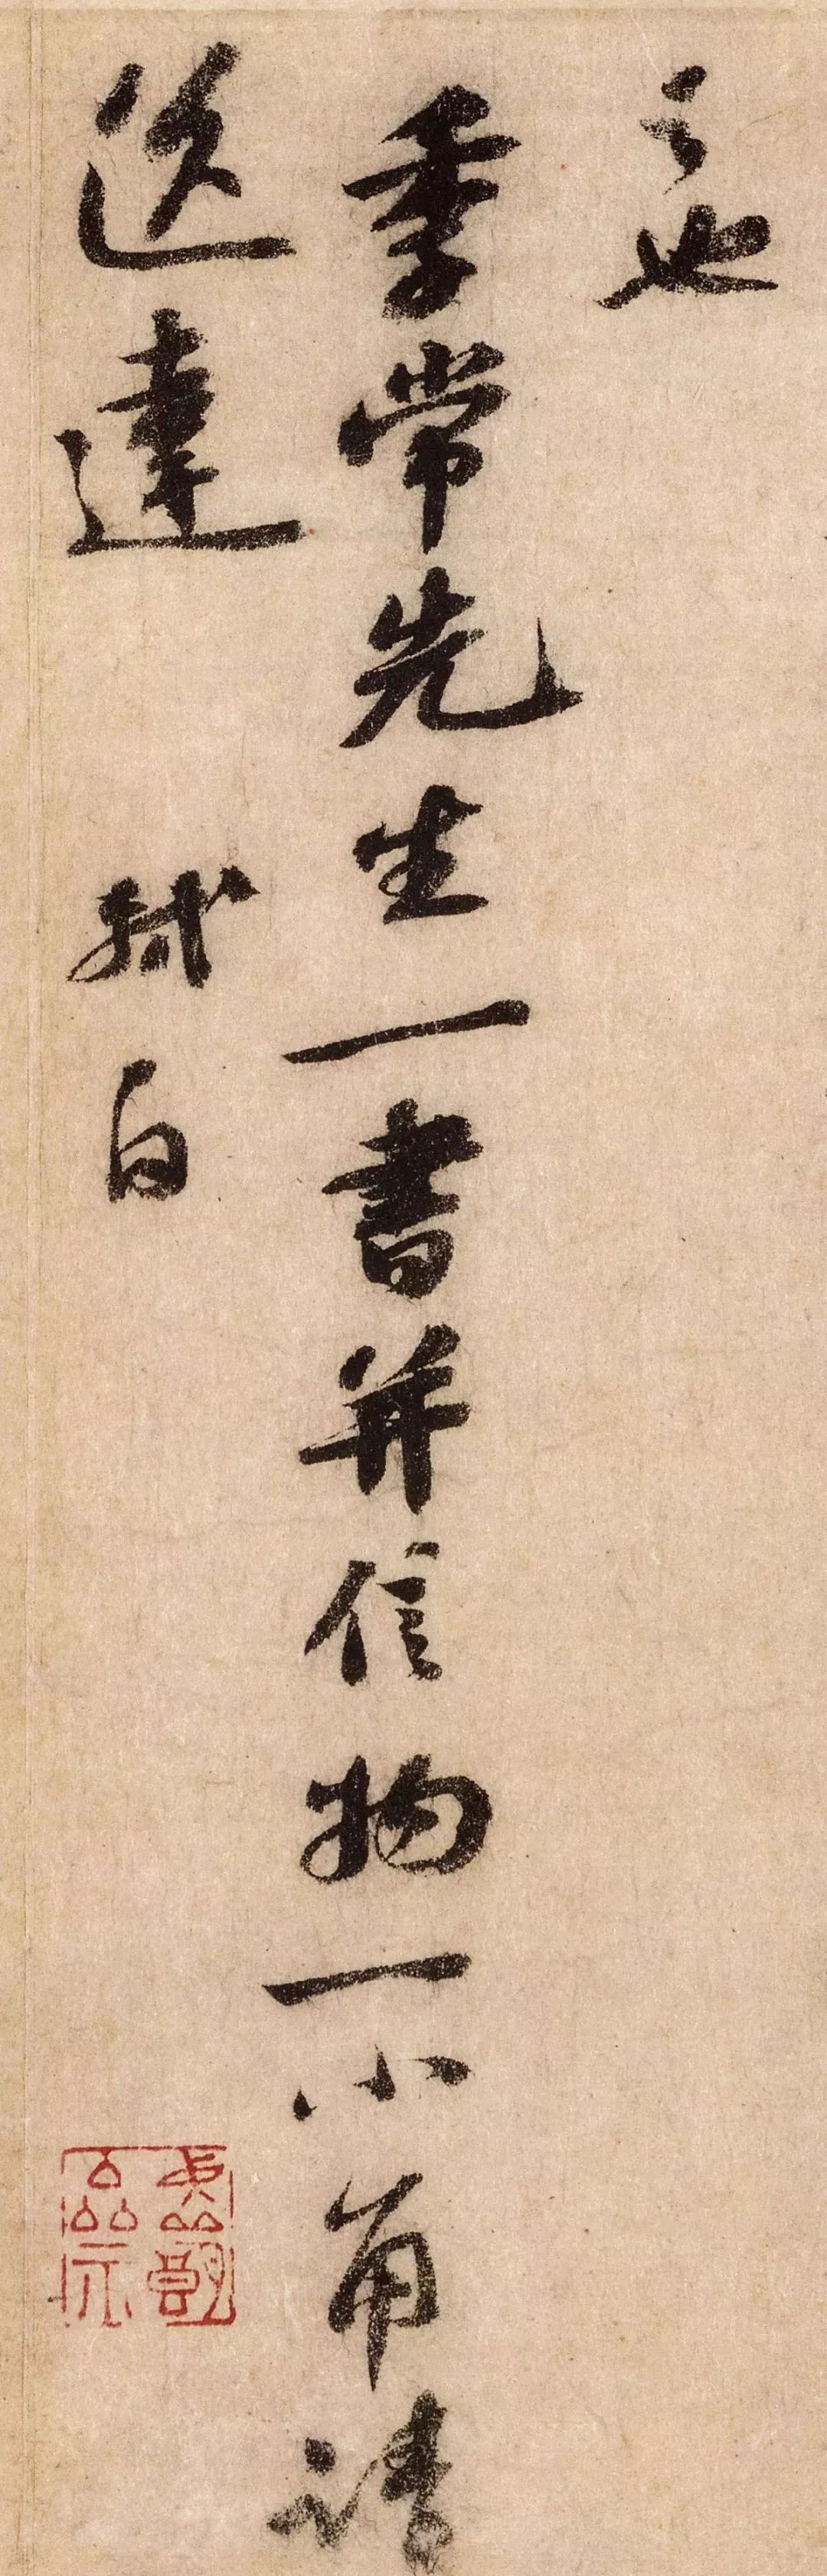 之也
季常先生一書并信物一小角請
送達　軾白